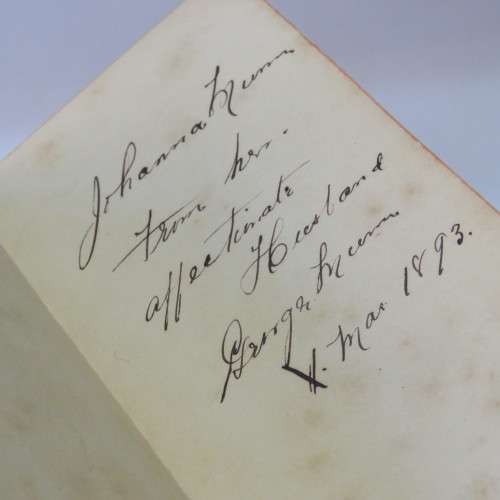 Johanna Munn
from her.
affectionate
Husband
George Munn
4. Mar. 1893.